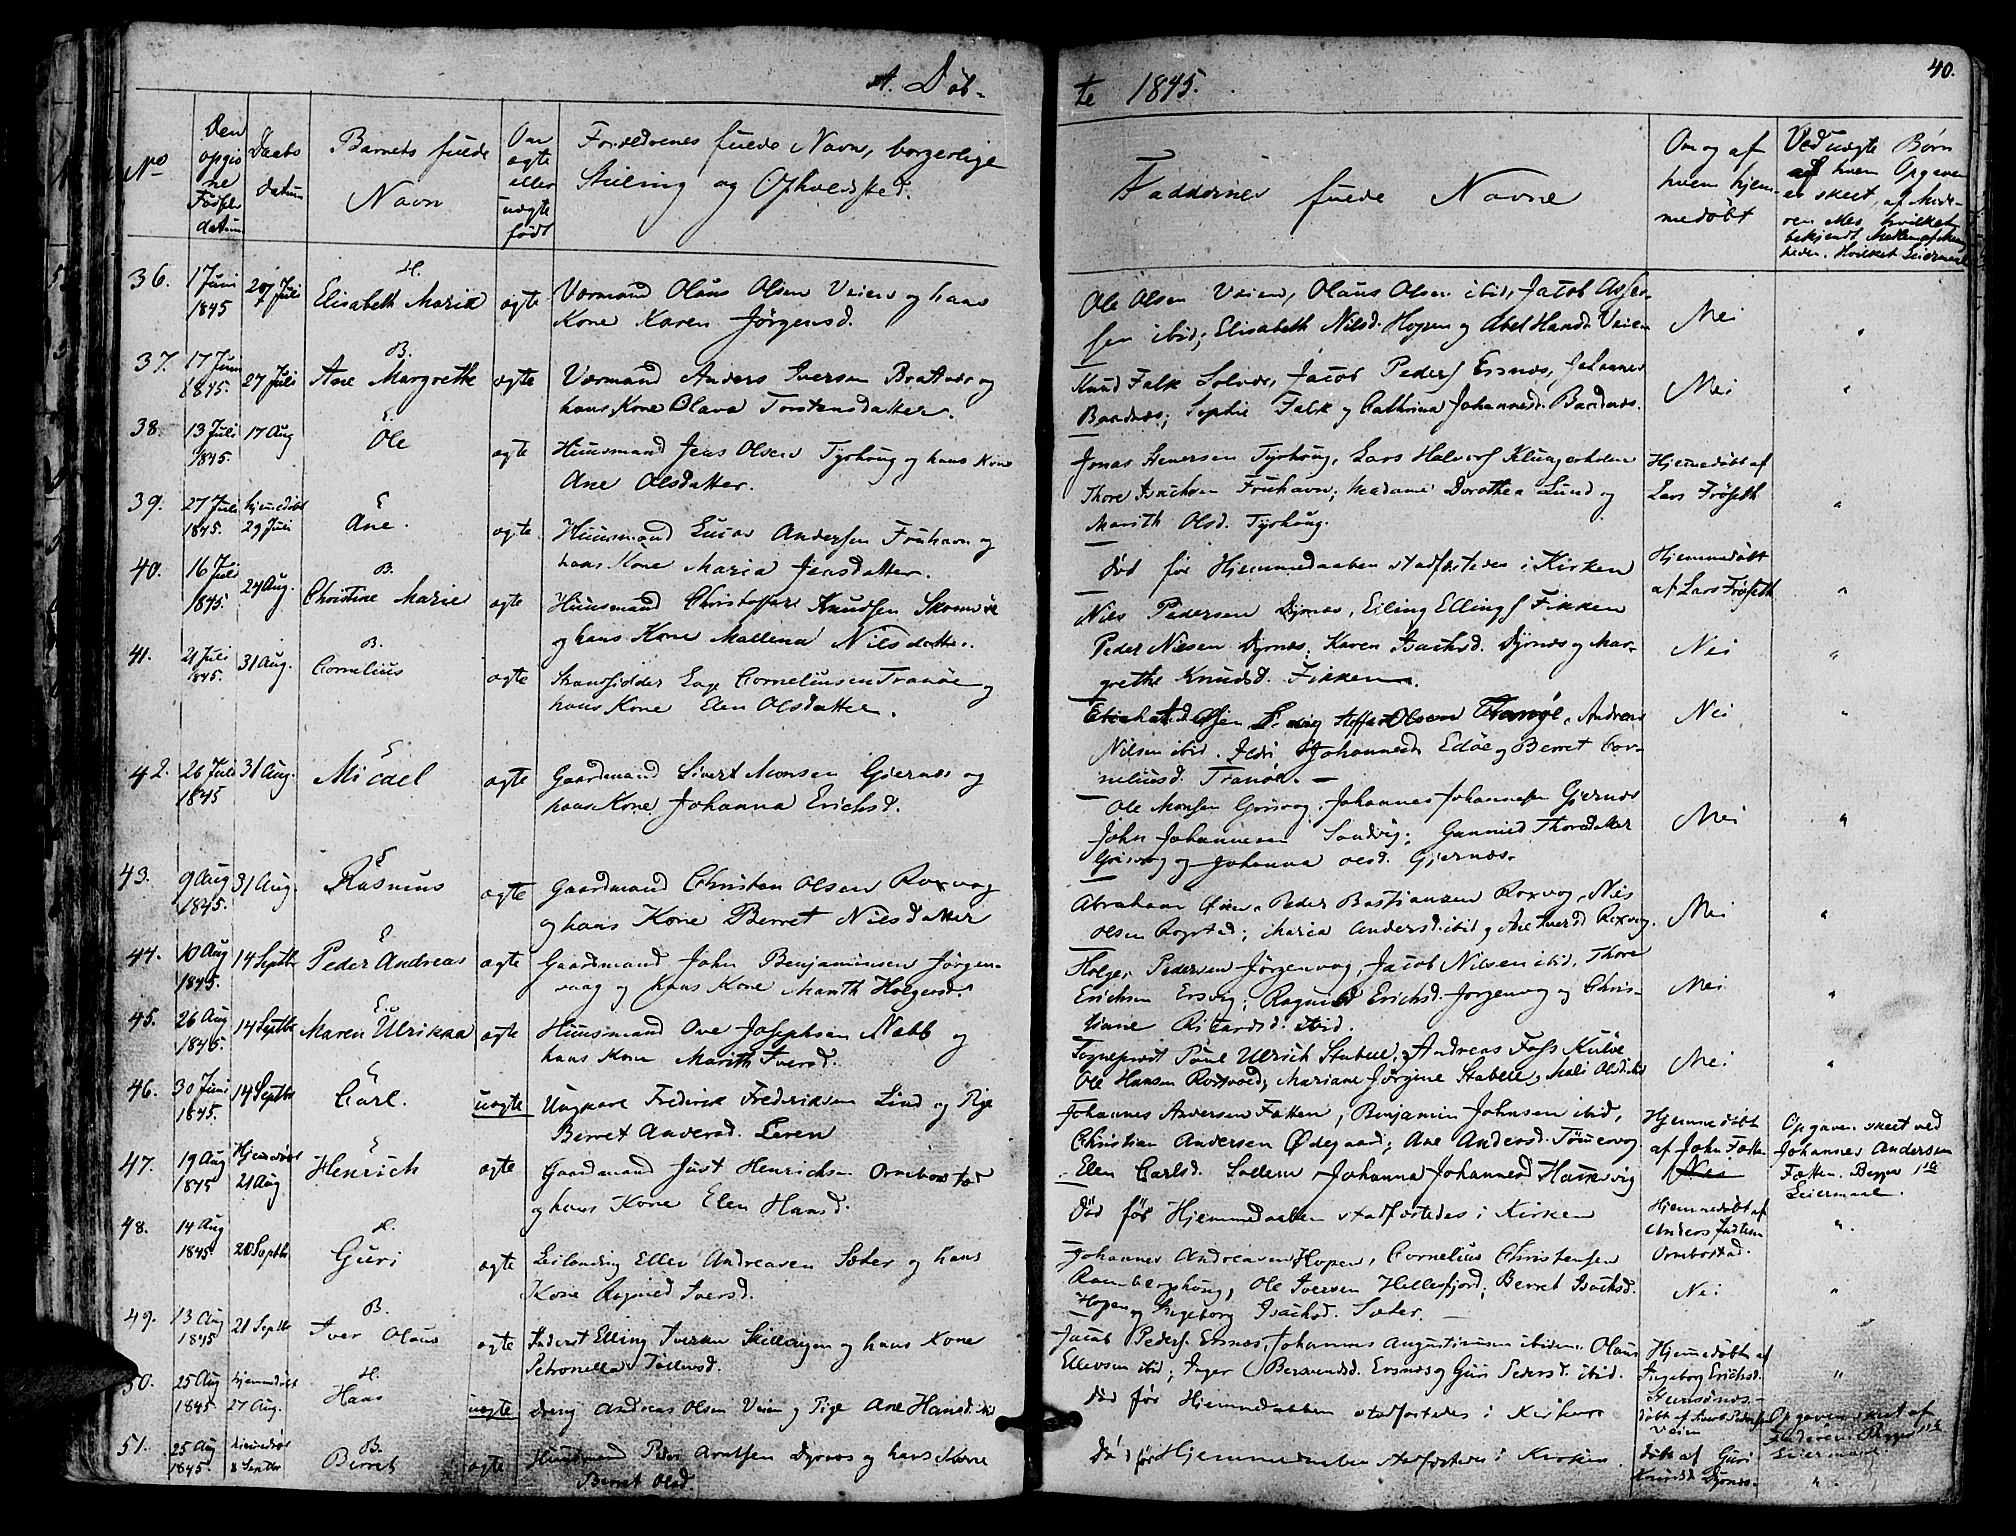 A. Døb-
te 1845.
40.
No
Den opgivne Fødsels datum
Daabs datum
Barnets fulde Navn
Om ægte eller uægte født
Forældrenes fulde Navn, borgerlige Stilling og Opholdsted.
Faddernes fulde Navne
Om og af hvem hjemmedøbt
Ved uægte Børn af hvem Opgaven er skeet, af Moderen eller hvilket bekjendt Medlem af Menigheden. Hvilket Leiermaal
36. 17 Juni 1845 27 Juli H. Elisabeth Marie ægte
Olaus Olsen Veien og hans
Kone Karen Jørgensd.
Ole Olsen Veien, Olaus Olsen ibid, Jacob Asser-
sen ibid; Elisabeth Nilsd. Hopen og Abel Hansd. Veien
Nei
37. 17 Juni 1845. 27 Juli B. Ane Margrethe ægte
Anders Iversen Bratnæs og
hans Kone Olava Torstensdatter.
Knud Falk Solvær, Jacob Peders. Ersnæs, Johannes
Bardnæs; Sophie Falk og Cathrina Johannesd. Bardnæs.
Nei
38. 13 Juli 1845. 17 Aug E Ole ægte
Huusmand Jens Olsen Tyrhoug og hans Kone
Ane Olsdatter.
Jonas Tyrhoug, Lars Halvors. Klungerholm
Thore Isachsen Fruhavn; Madame Dorothea Lund og
Marith Olsd. Tyrhoug.
Hjemmedøbt af
Lars Frøseth
39. 27 Juli 1845. hjemmedøbt 29 Juli E Ane. ægte
Huusmand Andersen Fruhavn og
hans Kone Maria Jensdatter.
død før Hjemmedaaben stadfæstedes i Kirken
Hjemmedøbt
af Lars Frøseth
40. 16 Juli 1845. 24 Aug. B. Christine Marie ægte
Huusmand Christoffer Knudsen
og hans Kone Mallena Nilsdatter.
Nils Pedersen Dyrnæs, Elling Ellings. Fikken
Peder Nilsen Dyrnæs; Karen Isachsd. Dyrnæs og Mar-
grethe Knudsd. Fikken.
Nei
41. 21 Juli 1845. 31 Aug. B. Cornelius ægte
Strandsidder Cornelius en Tranøe og
hans Kone Elen Olsdatter.
Olsen Tranøe, Andreas
Nilsen ibid. Johannesd. Edøe og Berret Cor-
neliusd. Tranøe.
Nei
42. 26 Juli 1845 31 Aug. E Micael ægte
Gaardmand Sivert Monsen Gjernæs og
hans Kone Johanna Erichsd.
Ole Monsen Grisvog; Johannes Johannesen Gjernæs
John Johannesen Sandvig; Gunnild Thoresdatter
Grisvog og Johanna Olsd. Gjernæs.
Nei
43. 9 Aug 1845. 31 Aug E Rasmus ægte
Gaardmand Christen Olsen Roxvog
og hans Kone Berret Nilsdatter
Abraham Øien, Peder Bastiansen Roxvog, Nils
Olsen Rogstad; Maria Andersd. ibid og Ane Iversd Roxvog.
Nei
44. 10 Aug 1845. 14 Septbr E Peder Andreas ægte
Gaardmand John Benjaminsen Jørgen-
vaag og hans Kone Marith Holgersd.
Holger Pedersen Jørgenvog, Jacob Nilsen ibid, Thore
Erichsen Ersvig; Ragnild Erichsd. Jørgenvog og Chris-
tiane Ricardsd. ibid.
Nei
45. 26 Aug 1845. 14 Septbr E Maren Ulrikka ægte
Huusmand Ove Josephsen Nabb og
hans Kone Marith Iversd.
Sogneprest Poul Ulrich Stabell, Andreas Foss Kuløe
Ole Hansen Roxvold; Mariane Jørgine Stabell, Mali Olsd. ibid
Nei
46. 30 Juni 1845. 14 Septbr E Carl. uægte
Ungkarl Frederik Frederiksen Lind og Pige
Berret Andersd. Leren
Johannes Andersen Fætten, Benjamin Johnsen ibid,
Christian Andersen Ødegaard; Ane Andersd. Tømmervog
Elen Carlsd. Sollem, Johanna Johannesd Hasselvig
Hjemmedøbt
af John Fætten
Nei
Opgaven skeet ved
Johannes Andersen
Fætten. Begges 1ste
Leiermaal.
47. 19 Aug 1845 Hjemmedøbt 21 Aug E Henrich ægte
Gaardmand Just Henrichsen Ornebostad
og hans Kone Elen Hansd.
død før Hjemmedaaben stadfæstedes i Kirken
Hjemmedøbt af
Anders Justsen
Ornebostad.
48. 14 Aug 1845. 20 Septbr H. Guri ægte
Leilænding Ellev Andreasen Sæter og hans
Kone Ragnild Iversd.
Johannes Andreasen Hopen, Cornelius Christensen
Ramberghoug, Ole Iversen Hellesfjord; Berret Isachsd.
Hopen og Ingeborg Isachsd. Sæter.
Nei
49. 13 Aug 1845 21 Septbr B. Iver Olaus ægte
Inderst Elling Iversen Skillagen og hans Kone
Petronella Tollevsd.
Jacob Peders. Ersnæs, Johannes Augustinusen ibidem. Olaus
Ellevsen ibid; Inger Bersvendsd. Ersnæs og Guri Pedersd. ibid.
Hjemmedøbt af
Ingeborg Erichsd.
50. 25 Aug 1845 hjemmedøbt 27 Aug. H. Hans uægte
Dreng Andreas Olsen Veien og Pige Ane Hansd. ibid
død før Hjemmedaaben stadfæstedes i Kirken
døbt af
Veien
Opgaven skeet af
Faderen. Begges 1ste
Leiermaal
51. 25 Aug 1845. hjemmedøbt 8 Septbr B. Berret ægte
Huusmand Peder Arntsen Dyrnæs og hans Kone
Berret Olsd.
Død før Hjemmedaaben stadfæstedes i Kirken.
døbt af Guri
Knudsd. Dyrnæs.